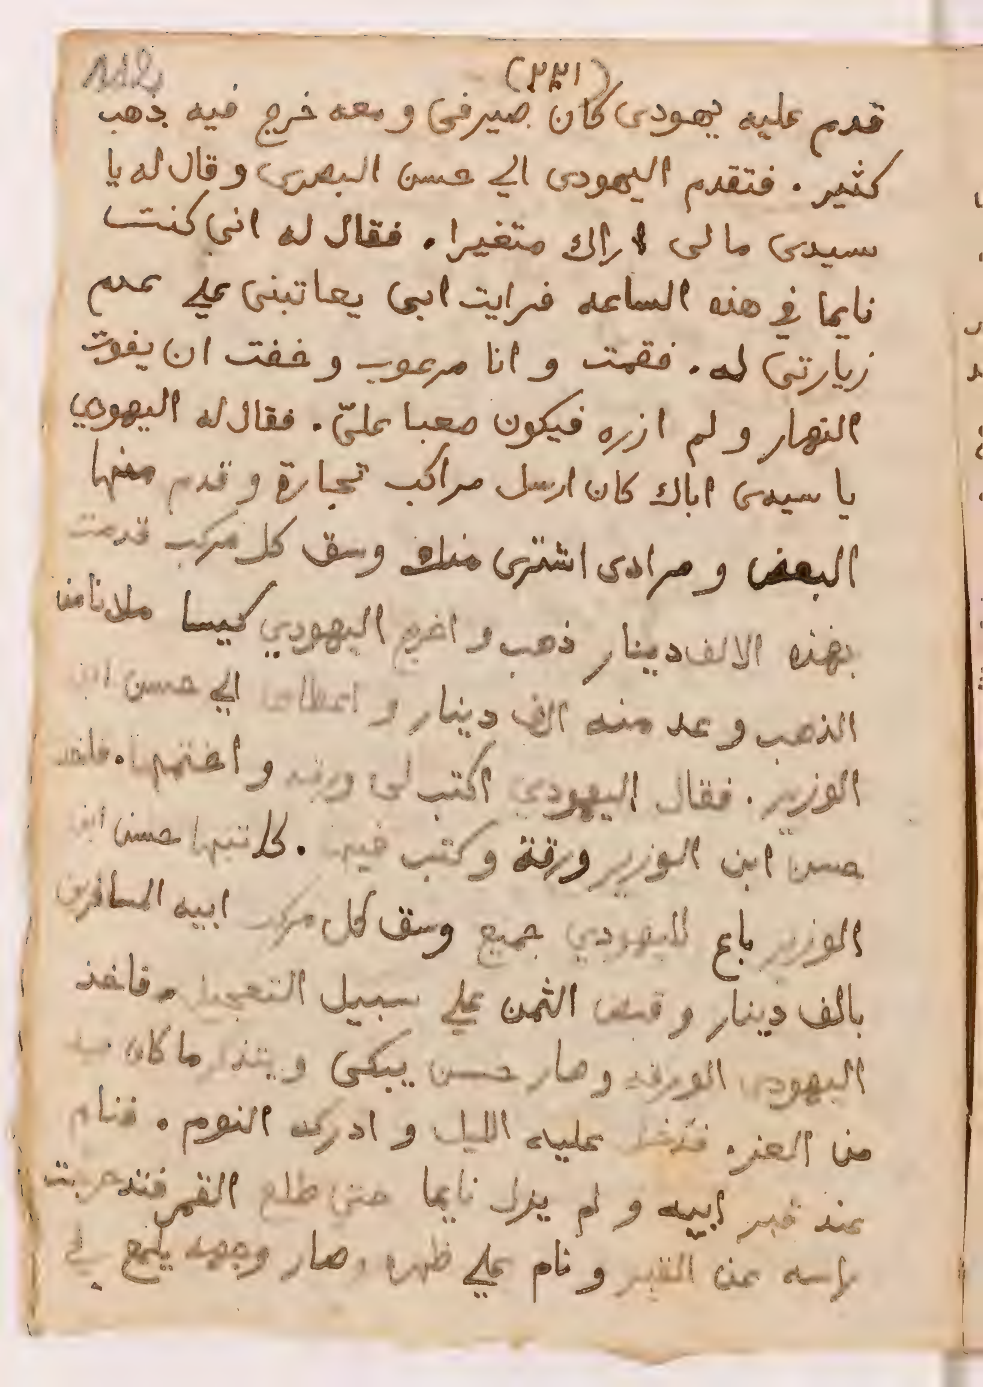 (٢٣١)
قدم عليه يهودى كان صيرفى و معه خرج فيه ذهب
كثير . فتقدم اليهودى الي حسن البصرى و قال له يا
سيدى مالى اراك متغيرا . فقال له انى كنت
نايما في هذه الساعه فرايت ابى يعاتبنى علي عدم
زيارتى له . فقمت و انا مرعوب و خفت ان يفوت
النهار و لم ازره فيكون صعبا عليّ . فقال له اليهودي
يا سيدى اباك كان ارسل مراكب تجارة و قدم منها
البعض و مرادى اشترى منك وسق كل مركب قدمت
بهذه الالف دينار ذهب و اخرج اليهودي كيسا ملانا من
الذهب و عد منه الف دينار و اعطاها الي حسن ابن
الوزير . فقال اليهودي اكتب لى ورقه و اختمها . فاخذ
حسن ابن الوزير ورقة و كتب فيها . كاتبها حسن ابن
الوزير باع لليهودي جميع وسق كل مركب ابيه المسافرين
بالف دينار و قبض الثمن علي سبيل التعجيل . فاخذ
اليهودى الورقه و صار حسن يبكى و يتذكر ما كان
من العز . فدخل عليه الليل و ادركه النوم . فنام
عند قبر ابيه و لم يزل نايما حتى طلع القمر فتدحرجت
راسه عن القبر و نام علي ظهره و صار وجهه يلمع في